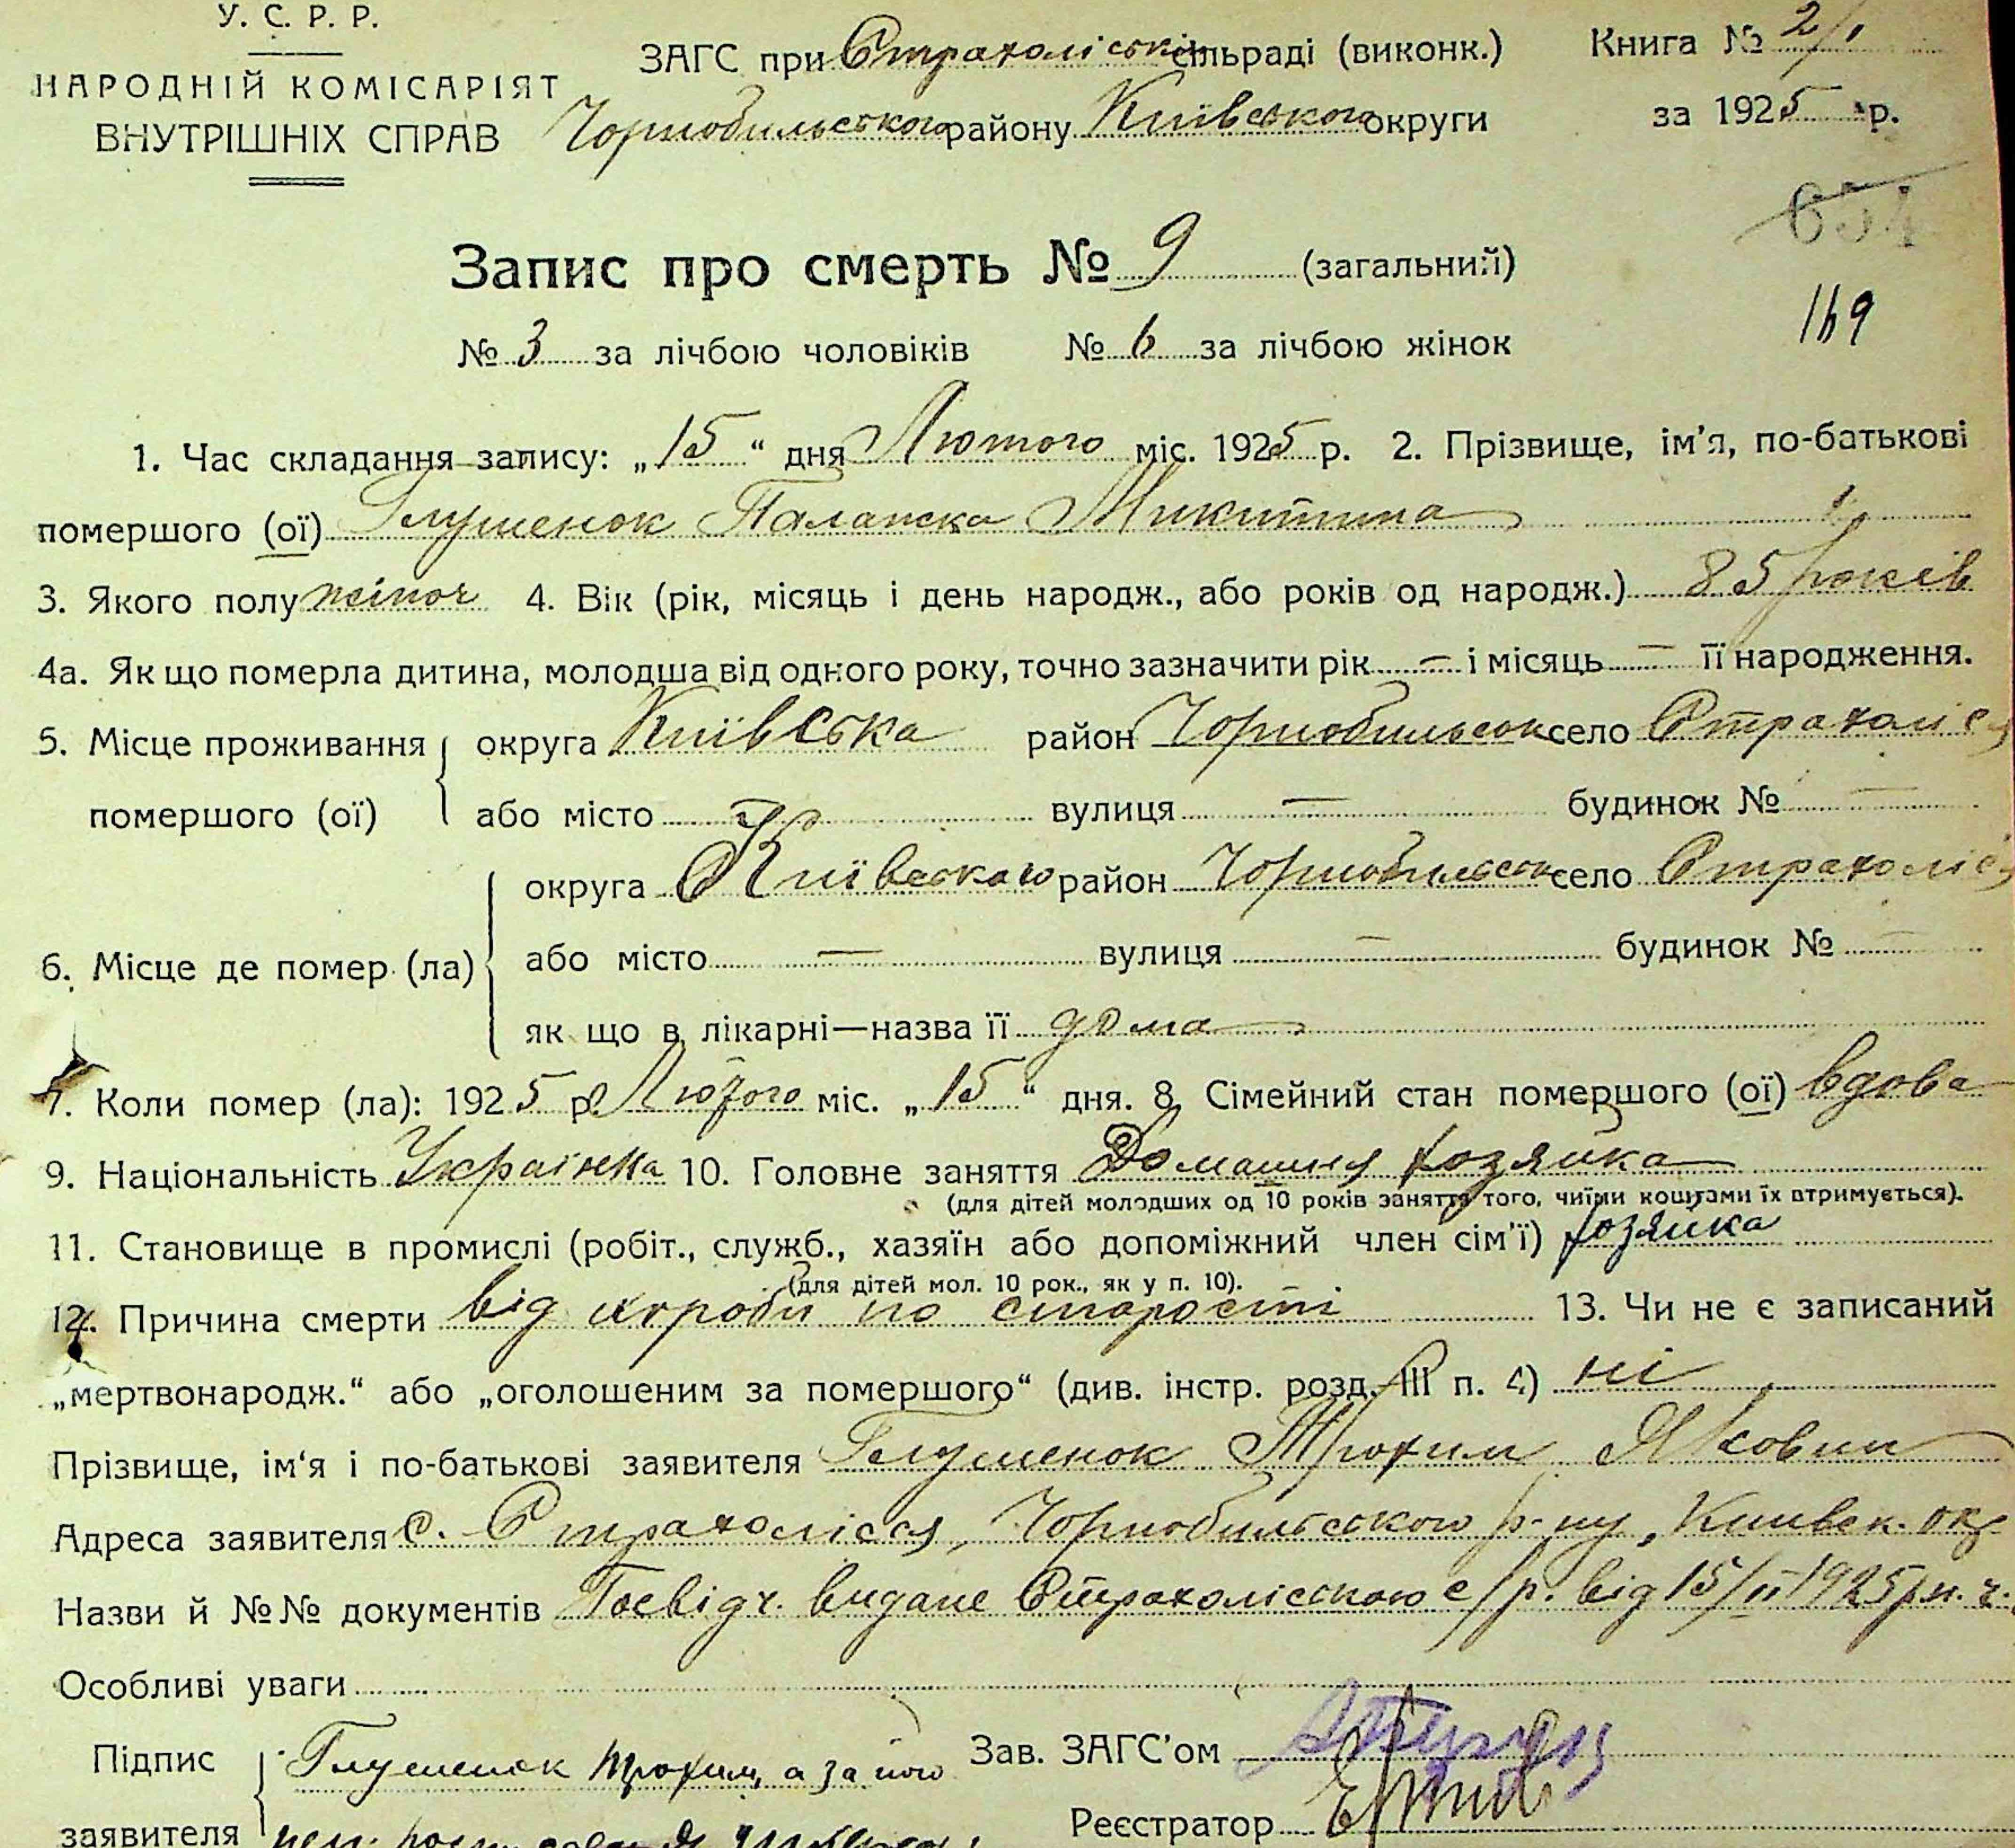 У. С. Р. Р.
НАРОДНІЙ КОМІСАРІЯТ
ВНУТРІШНІХ СПРАВ
ЗАГС при Страхоліській сільраді (виконк.)
Чорнобильського району Київського округи
Книга № 2/1
за 1925 р.
654
Запис про смерть № 9 (загальний)
169
№ 3 за лічбою чоловіків № 6 за лічбою жінок
1. Час складання запису: „15“ дня Лютого міс. 1925 р. 2. Прізвище, ім'я, по-батькові
помершого (ої) Глушенок Палашка Микитина
3. Якого полу жіноч 4. Вік (рік, місяць і день народж., або років од народж.) 85 років
4а. Як що померла дитина, молодша від одного року, точно зазначити рік — і місяць — її народження.
5. Місце проживання округа Київська район Чорнобильськ село Страхолісся
помершого (ої) або місто — вулиця — будинок № —
округа Київського район Чорнобильськ село Страхолісся
6. Місце де помер (ла) або місто — вулиця — будинок № —
як що в лікарні—назва її дома
7. Коли помер (ла): 1925 р. Лютого міс. „15“ дня. 8. Сімейний стан помершого (ої) вдова
9. Національність Українка 10. Головне заняття Домашня хозяйка
(для дітей молодших од 10 років заняття того, чиїми коштами їх втримується).
11. Становище в промислі (робіт., служб., хазяїн або допоміжний член сім'ї) хозяйка
(для дітей мол. 10 рок., як у п. 10).
12. Причина смерти від хороби по старості 13. Чи не є записаний
„мертвонародж.“ або „оголошеним за помершого“ (див. інстр. розд. III п. 4) ні
Прізвище, ім'я і по-батькові заявителя Глушенок Трохим Якович
Адреса заявителя с. Страхолісся, Чорнобильського р-ну, Київськ. окр
Назви й №№ документів Посвідч. видане Страхоліською с/р. від 15/II 1925 р н. ч.
Особливі уваги
Підпис Глушенок Трохим, а за його Зав. ЗАГС'ом
заявителя Реєстратор